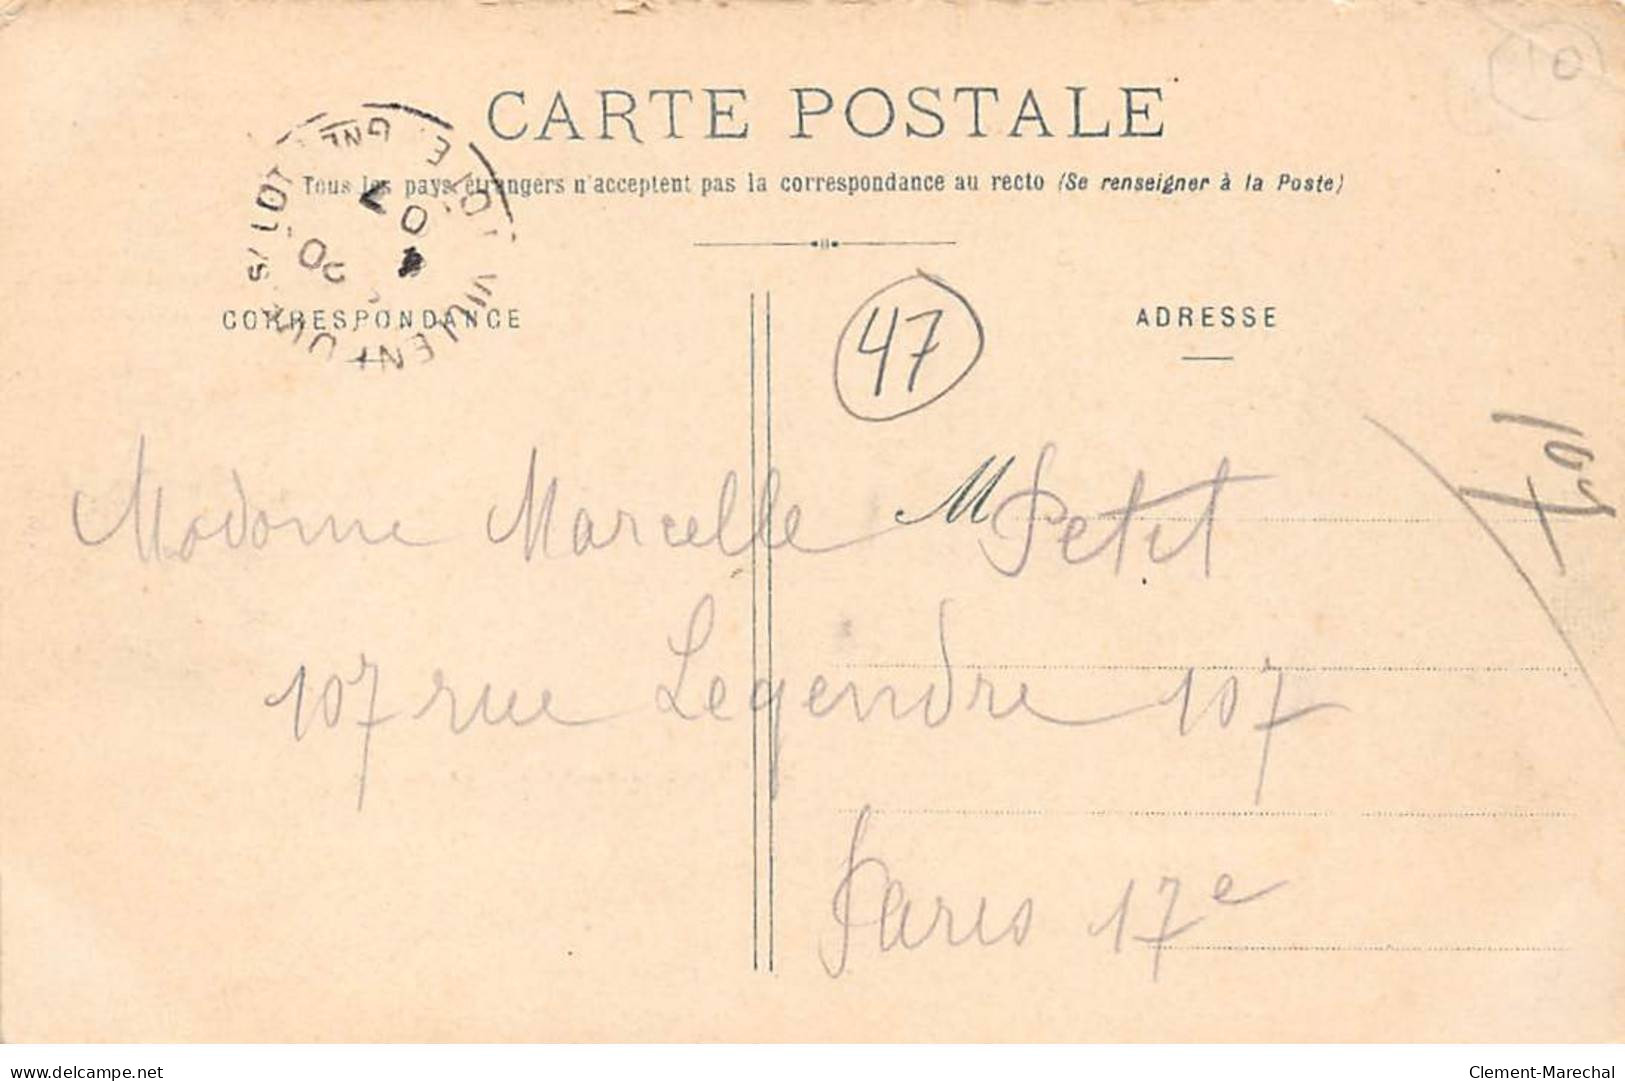 CARTE POSTALE
Tous les pays étrangers n'acceptent pas la correspondance au recto (Se renseigner à la Poste)
CORRESPONDANCE
ADRESSE
47
10
Madame Marcelle M Petit
107 rue Legendre 107
Paris 17e
www.delcampe.net
Clement-Marechal